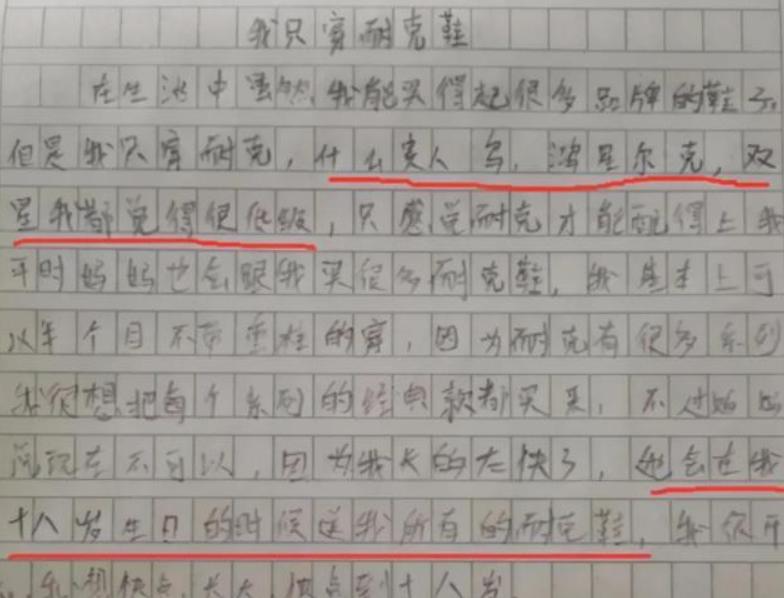 我只穿耐克鞋
在生活中虽然我能买得起很多品牌的鞋子
但是我只穿耐克，什么贵人鸟，鸿星尔克，双
星我都觉得很低级，只感觉耐克才能配得上我
平时妈妈也会跟我买很多耐克鞋，我基本上可
以半个月不带重样的穿，因为耐克有很多系列
我很想把每个系列的经典款都买来，不过妈妈
说现在不可以，因为我长的太快了，她会在我
十八岁生日的时候送我所有的耐克鞋，我很开
我想快点长大，快点到十八岁